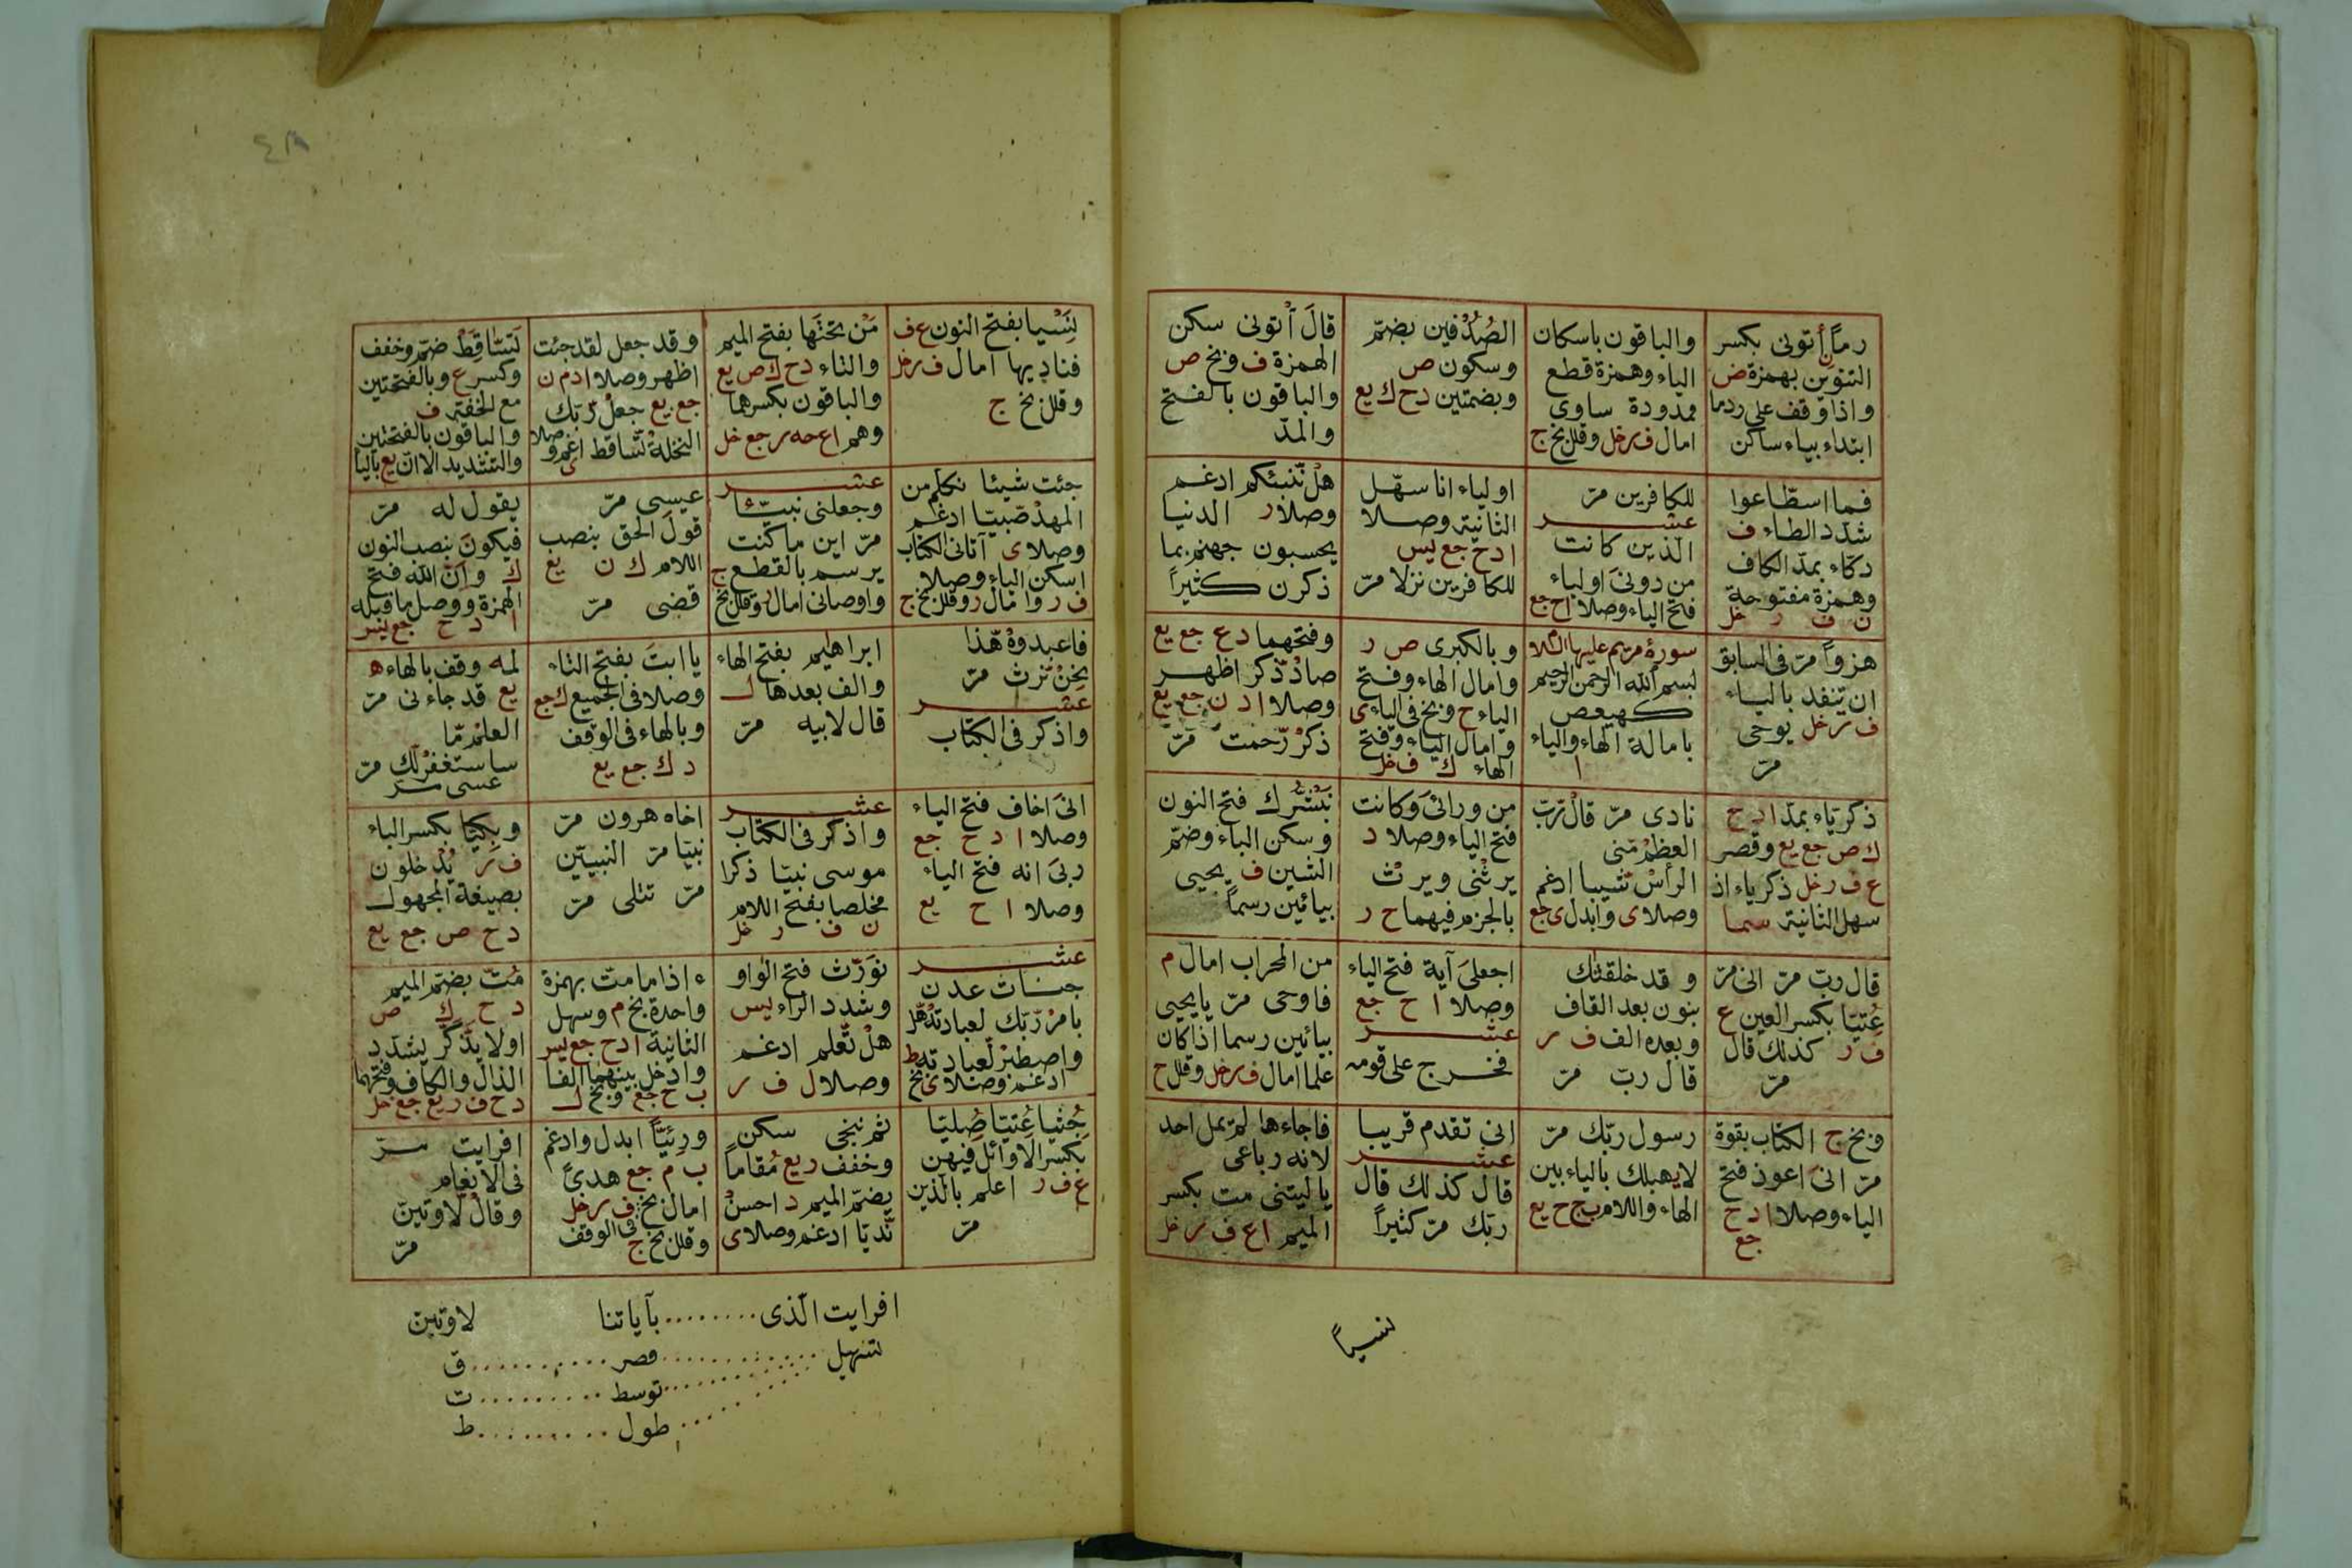 رماً أتونى بكسر
التنوين بهمزة ض
واذا وقف على ردما
ابتداء بياء ساكن
والباقون باسكان
الياء وهمزة قطع
ممدودة ساوى
امال ف ر خل وقلل بخ ج
الصدفين بضمّ
وسكون ص
وبضمتين دح ك يع
قالَ أتونى سكن
الهمزة ف وبخ ص
والباقون بالفتح
والمدّ
فما اسطّاعوا
شدّد الطاء ف
دكّاء بمدّ الكاف
وهمزة مفتوحة
ن ف ر خل
للكافرين مرّ
عشر
الذين كانت
من دونىَ اولياء
فتح الياء وصلا اح جع
اولياء انا سهّل
الثانية وصلا
ادح جع يس
للكافرين نزلا مرّ
هلْ نّنبئكم ادغم
وصلا ر الدنيا
يحسبون جهنم بما
ذكرن كثيراً
هزواً مرّ فى السابق
ان تنفد بالياء
ف ر خل يوحى
مرّ
سورة مريم عليها السلا
بسم الله الرحمن الرحيم
كهيعص
بامالة الهاء والياء
ا
وبالكبرى ص ر
وامال الهاء وفتح
الياء ح وبخ فى الياء ى
وامال الياء وفتح
الهاء ك ف خل
وفتحهما دع جع يع
صادْ ذّكر اظهر
وصلا اد ن جع يع
ذكرْ رّحمت مرّ
ذكريّاء بمدّ ادح
ك ص جع يع وقصر
ع ف ر خل ذكرياء اذ
سهل الثانية سما
نادى مرّ قالْ رّبّ
العظمْ مّنى
الرأسْ شّيبا ادغم
وصلا ى وابدل ى جع
من ورائىَ وكانت
فتح الياء وصلا د
يرثْنى ويرثْ
بالجزم فيهما ح ر
نَبْشُرك فتح النون
وسكن الباء وضمّ
الشين ف يحيى
بيائين رسماً
قال ربّ مرّ انى مرّ
عِتيّا بكسر العين ع
ف ر كذلك قال
مرّ
وقد خلقناك
بنون بعد القاف
وبعده الف ف ر
قال ربّ مرّ
اجعلىَ آية فتح الياء
وصلا ا ح جع
عشر
فخرج على قومه
من المحراب امال م
فاوحى مرّ يايحيى
بيائين رسما اذا كان
علما امال ف ر خل وقلل ح
وبخ ج الكتاب بقوة
مرّ انىَ اعوذ فتح
الياء وصلا ادح
جع
رسول ربّك مرّ
لايهبلك بالياء بين
الهاء واللام ب ج ح يع
انى تقدم قريبا
عشر
قال كذلك قال
ربّك مرّ كثيراً
فاجاءها لم يمل احد
لانه رباعى
ياليتنى مت بكسر
الميم اع ف ر خل
نسياً
نَسْيا بفتح النون ع ف
فناديها امال ف ر خل
وقلل بخ ج
مَنْ تحتَها بفتح الميم
والتاء دح ك ص يع
والباقون بكسرهما
وهم اع حه ر جع خل
وقد جعل لقد جئت
اظهر وصلا ادم ن
جع يع جعلْ رّبّك
النخلةْ تّساقط ادغم وصلا
ى
تَسَاقِطْ ضم وخفف
وكسر ع وبالفتحتين
مع الخفة ف
والباقون بالفتحتين
والتشديد الا ان يع بالياء
جئت شيئا نكلم من
المهدْ صّبيّا ادغم
وصلا ى آتانى الكتاب
اسكن الياء وصلا
ف ر وامال ر وقلل بخ ج
عشر
وجعلنى نبيئا
مرّ اين ما كنت
يرسم بالقطع ج
واوصانى امال ر وقلل بخ
عيسى مرّ
قولَ الحق بنصب
اللام ك ن يع
قضى مرّ
يقول له مرّ
فيكونَ بنصب النون
ك وانّ الله فتح
الهمزة ووصل ما قبله
ا د ح جع يس
فاعبدوهْ هّذا
نحنْ نّرث مرّ
عشر
واذكر فى الكتاب
ابراهيم بفتح الهاء
والف بعدها ل
قال لابيه مرّ
يا ابتَ بفتح التاء
وصلا فى الجميع ك جع
وبالهاء فى الوقف
د ك جع يع
لمه وقف بالهاء ه
يع قد جاءنى مرّ
العلمْ مّا
ساستغفرْ لّك مرّ
عسى مرّ
انىَ اخاف فتح الياء
وصلا ا د ح جع
ربىَ انه فتح الياء
وصلا ا ح يع
عشر
واذكر فى الكتاب
موسى نبيّا ذكرا
مخلصا بفتح اللام
ن ف ر خل
اخاه هرون مرّ
نبيّا مرّ النبيّين
مرّ تتلى مرّ
وبِكيّا بكسر الباء
ف ر يُدخلون
بصيغة المجهول
دح ص جع يع
عشر
جنات عدن
بامرْ رّبّك لعبادتهْ هّل
واصطبرْ لّعبادته ط
ادغم وصلا ى بخ
نوَرّث فتح الواو
وشدد الراء يس
هلْ تّعلم ادغم
وصلا ل ف ر
ء اذا مامتّ بهمزة
واحدة بخ م وسهل
الثانية ادح جع يس
وادخل بينهما الفا
ب ح جع وبخ ل
مُتّ بضمّ الميم
د ح ك ص
اولا يذّكّر يشدّد
الذال والكاف وفتحهما
دح ف ر يع جع خل
جُثيا عُتيّا صُليّا
بكسر الاوائل فيهن
ع ف ر اعلم بالذين
مرّ
ثم ننجى سكن
وخفف ر يع مُقاماً
بضمّ الميم د احسنْ
نّديّا ادغم وصلا ى
ورِئيّاً ابدل وادغم
ب م جع هدىً
امال بخ ف ر خل
وقلل بخ ج فى الوقف
افرايت مرّ
فى الانعام
وقال لاوتينّ
مرّ
افرايت الّذى ........ بآياتنا لاوتينّ
تسهيل ............ قصر .......... ق
توسط ......... ت
طول ......... ط
٤٨